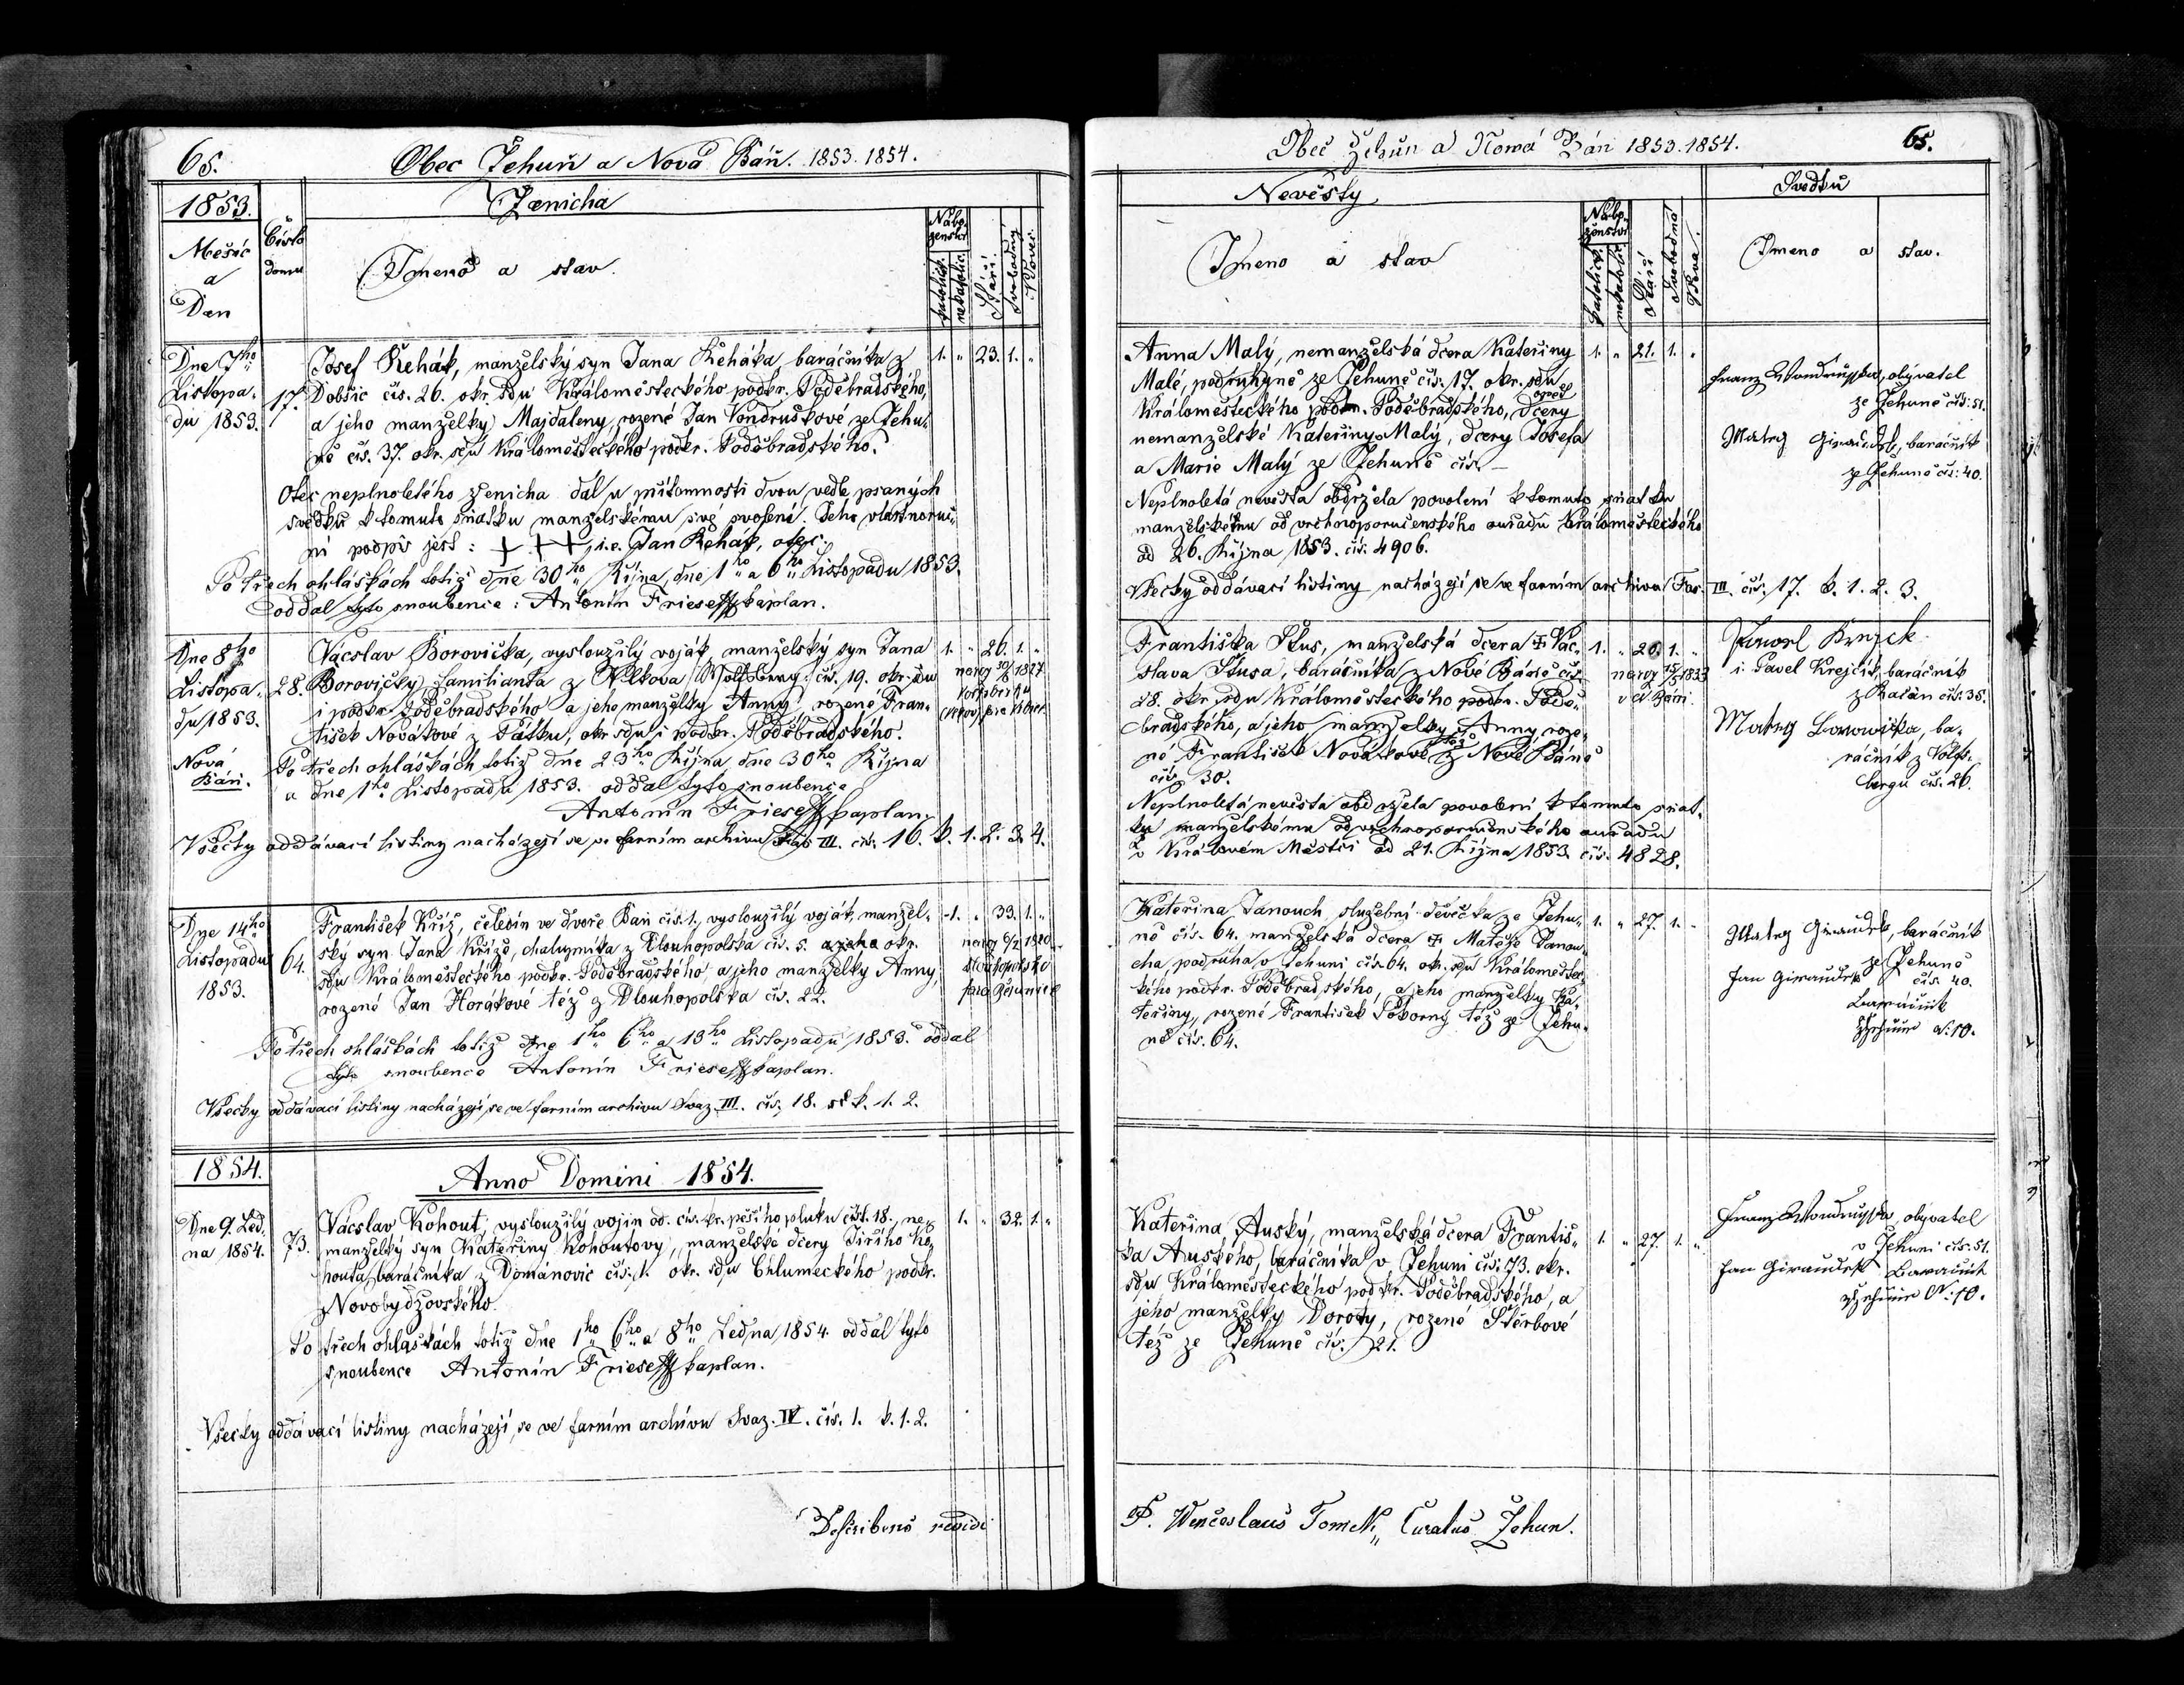 65. Obec Žehuň a Nová Báň. 1853. 1854.
1853.
Měsíc
a
Den
Číslo
domu
Ženicha
Jmeno a stav.
Nábo-
ženství
katolick.
nekatolic.
Stáří.
Svobodný
Vdovec.
Dne 7ho
Listopa-
du 1853.
17.
Josef Řehák, manželský syn Jana Řeháka, baráčníka z
Dobšic čís. 26. okr. sdu Králoměsteckého podkr. Poděbradského,
a jeho manželky Majdaleny, rozené Jan Vondruškové ze Žehu-
ně čís. 37. okr. sdu Králoměsteckého podkr. Poděbradského.
1. " 23. 1. "
Otec neplnoletého ženicha dal u přítomnosti dvou vedle psaných
svědků k tomuto sňatku manželskému své svolení. Jeho vlastnoruč-
ní podpis jest: + + +, i.e. Jan Řehák, otec.
Po třech ohláškách totiž dne 30ho Října, dne 1ho a 6ho Listopadu 1853.
oddal tyto snoubence: Antonín Friese kaplan.
Dne 8ho
Listopa-
du 1853.
Nová
Báň.
28.
Vácslav Borovička, vysloužilý voják, manželský syn Jana
Borovičky familianta z Vlkova (Wolfsberg) čís. 19. okr. sdu
i podkr. Poděbradského a jeho manželky Anny, rozené Fran-
tišek Novákové z Pátku, okr. sdu i podkr. Poděbradského.
1. " 26. 1. "
Po třech ohláškách totiž dne 23ho Října dne 30ho Října
a dne 1ho Listopadu 1853. oddal tyto snoubence
Antonín Friese kaplan.
Všecky oddávací listiny nacházejí se ve farním archivu Fas III. čís. 16. k. 1. 2. 3. 4.
Dne 14ho
Listopadu
1853.
64.
František Kříž, čeledín ve dvoře Báň čís. 1., vysloužilý voják, manžel-
ský syn Jana Kříže, chalupníka z Dlouhopolska čís. 5. a jeho okr.
sdu Králoměsteckého podkr. Poděbradského, a jeho manželky Anny,
rozené Jan Horákové též z Dlouhopolska čís. 22.
1. " 33. 1. "
Po třech ohláškách totiž dne 1ho 6ho a 13ho Listopadu 1853. oddal
tyto snoubence Antonín Friese kaplan.
Všecky oddávací listiny nacházejí se ve farním archivu Svaz. III. čís. 18. k. 1. 2.
1854.
Anno Domini 1854.
Dne 9. Led-
na 1854.
73.
Vácslav Kohout, vysloužilý vojín od. cís. kr. pěšího pluku čísl. 18., ne-
manželský syn Kateřiny Kohoutovy, manželské dcery Jiřího Ko-
houta, baráčníka z Dománovic čís. 1. okr. sdu Chlumeckého podkr.
Novobydžovského.
1. " 32. 1. "
Po třech ohláškách totiž dne 1ho 6ho a 8ho Ledna 1854. oddal tyto
snoubence Antonín Friese kaplan.
Všecky oddávací listiny nacházejí se ve farním archivu Svaz. IV. čís. 1. k. 1. 2.
Obec Žehuň a Nová Báň 1853. 1854. 65.
Nevěsty
Jmeno a stav
Nábo-
ženství
katolick.
nekatolic.
Stáří
Svobodná
Vdova.
Svědků
Jmeno a stav.
Anna Malý, nemanželská dcera Kateřiny
Malé, podruhyně ze Žehuně čís. 17. okr. sdu
Králoměsteckého podkr. Poděbradského, opět dcery
nemanželské Kateřiny Malý, dcery Josefa
a Marie Malý ze Žehuně čís. —
1. " 21. 1. "
Neplnoletá nevěsta obdržela povolení k tomuto sňatku
manželskému od vrchnoporučenského ouřadu Králoměsteckého
od 26. Října 1853. čís. 4906.
Všecky oddávací listiny nacházejí se ve farním archivu Fas. III. čís. 17. k. 1. 2. 3.
Franz Wondruschka, obývatel
ze Žehuně čís. 51.
baráčník
ze Žehuně čís. 40.
Františka Štus, manželská dcera + Vác-
slava Štusa, baráčníka z Nové Báně čís.
28. okr. sdu Králoměsteckého podkr. Podě-
bradského, a jeho manželky Anny, roze-
né František Novákové též z Nové Báně
čís. 30.
1. " 20. 1. "
Neplnoletá nevěsta obdržela povolení k tomuto sňat-
ku manželskému od vrchnoporučenského ouřadu
v Královém Městci od 21. Října 1853. čís. 4828.
i. Pavel Krejčík, baráčník
z Račan čís. 35.
Matěg Borowička, ba-
ráčník z Volfs-
bergu čís. 26.
Kateřina Janouch, služební děvečka ze Žehu-
ně čís. 64. manželská dcera + Matěje Janou-
cha, podruha v Žehuni čís. 64. okr. sdu Králoměstec-
kého podkr. Poděbradského, a jeho manželky Ka-
teřiny, rozené František Pokorny též ze Žehu-
ně čís. 64.
1. " 27. 1. "
baráčník
ze Žehuně
čís. 40.
Kateřina Auský, manželská dcera Františ-
ka Auského, baráčníka v Žehuni čís. 73. okr.
sdu Králoměsteckého podkr. Poděbradského, a
jeho manželky Doroty, rozené Štěrbové
též ze Žehuně čís. 21.
1. " 27. 1. "
Franz Wondruschka obyvatel
v Žehuni čís. 51.
P. Wenceslaus Tomek, Curatus Žehun.